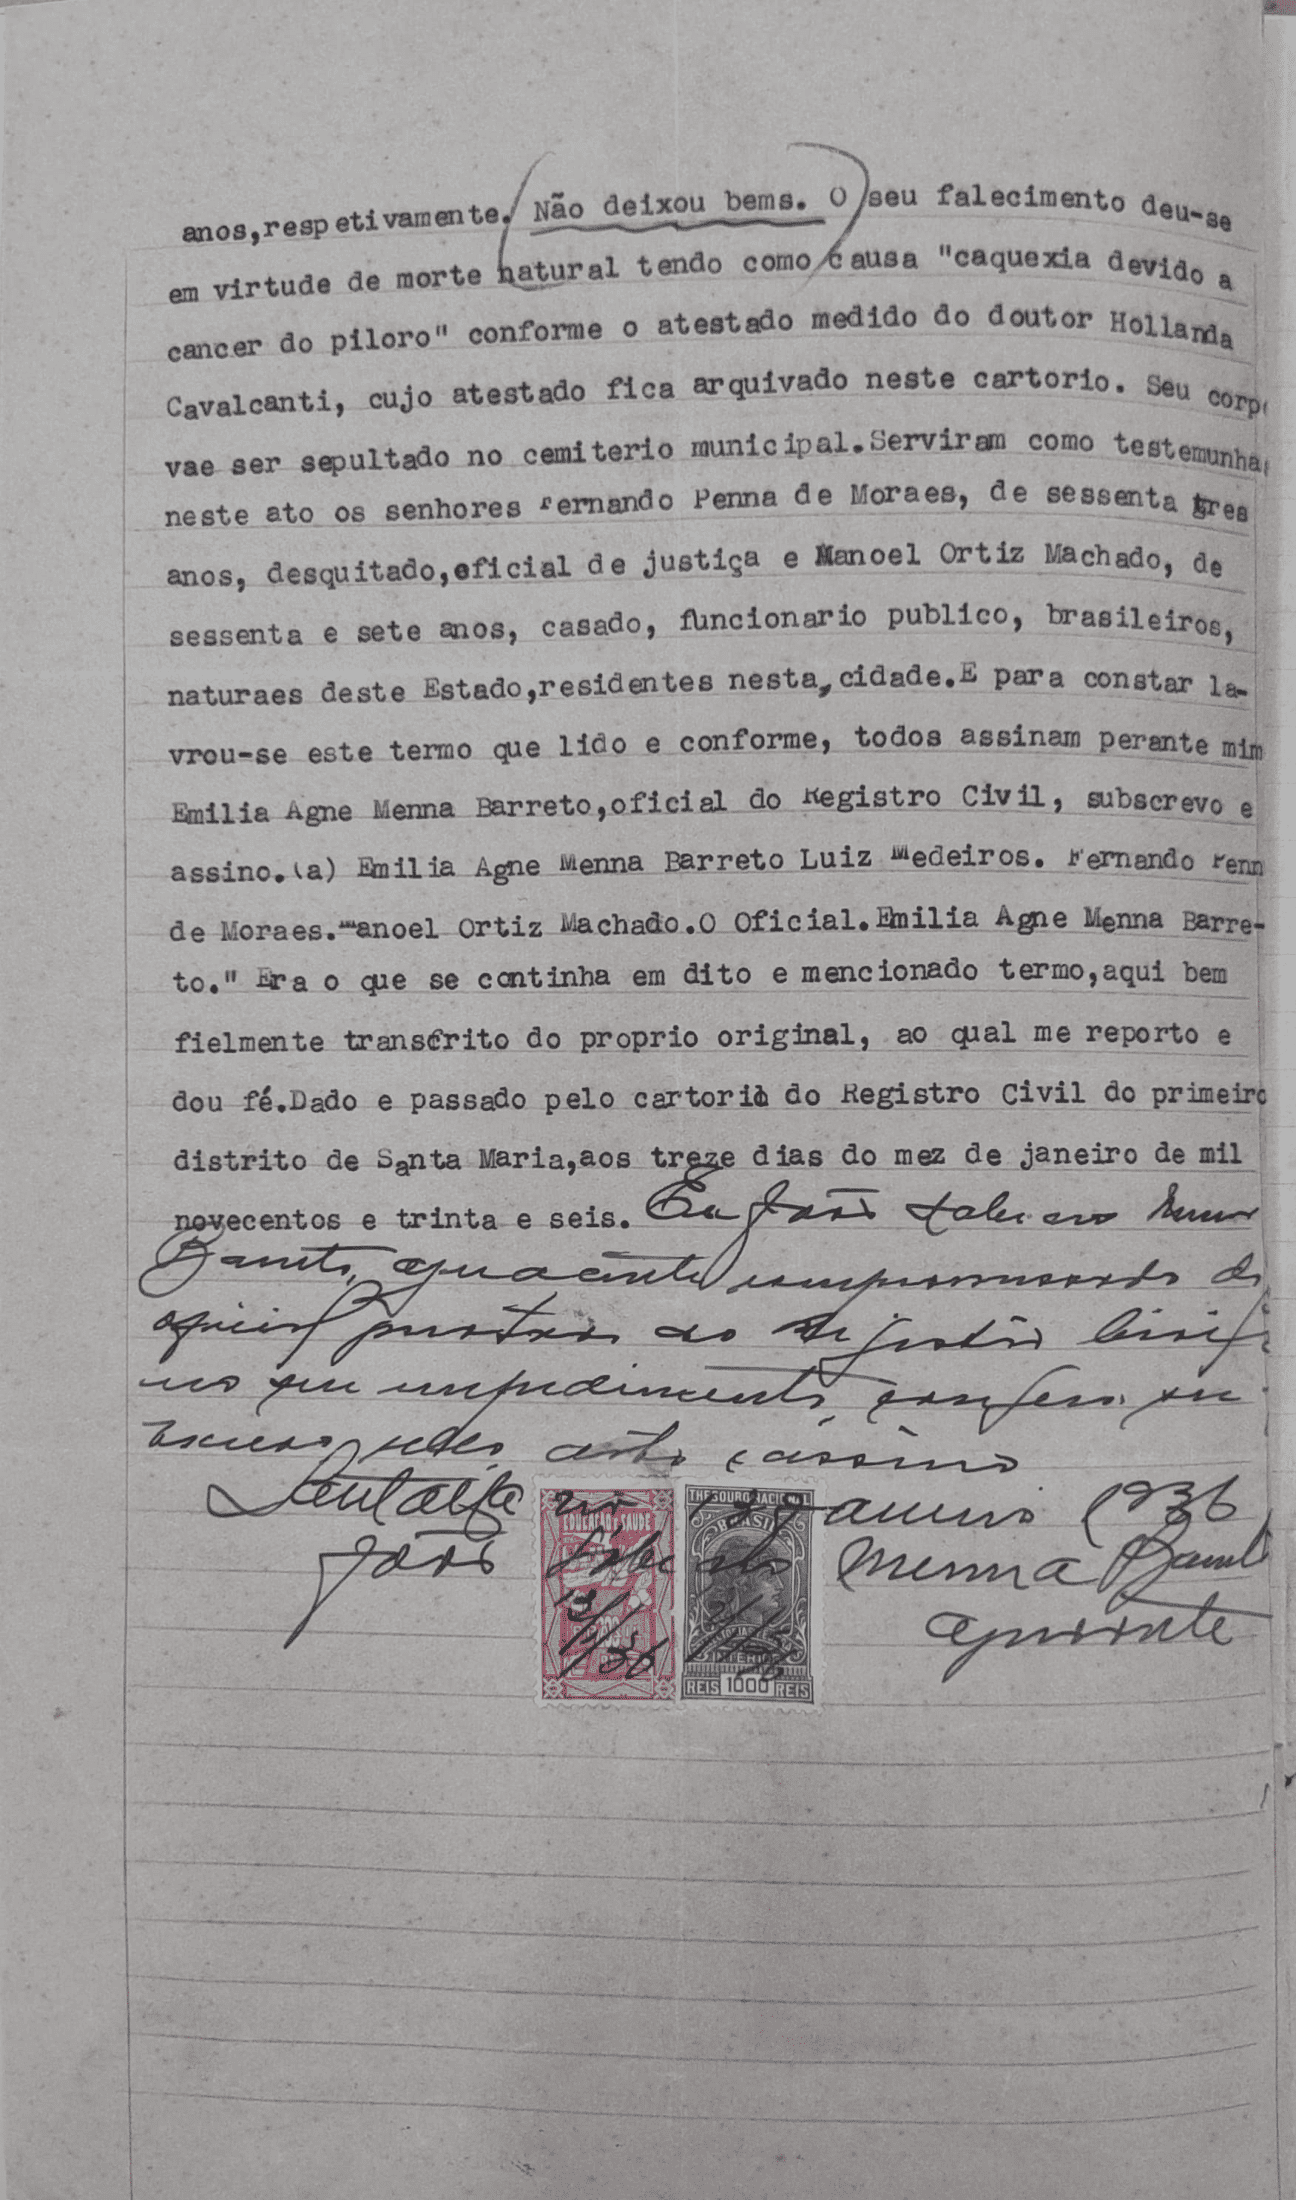 anos,respetivamente. Não deixou bems. O seu falecimento deu-se
em virtude de morte natural tendo como causa "caquexia devido a
cancer do piloro" conforme o atestado medido do doutor Hollanda
Cavalcanti, cujo atestado fica arquivado neste cartorio. Seu corpo
vae ser sepultado no cemiterio municipal.Serviram como testemunhas
neste ato os senhores Fernando Penna de Moraes, de sessenta tres
anos, desquitado,oficial de justiça e Manoel Ortiz Machado, de
sessenta e sete anos, casado, funcionario publico, brasileiros,
naturaes deste Estado,residentes nesta,cidade.E para constar la-
vrou-se este termo que lido e conforme, todos assinam perante mim
Emilia Agne Menna Barreto,oficial do Registro Civil, subscrevo e
assino.(a) Emilia Agne Menna Barreto Luiz Medeiros. Fernando Penn
de Moraes.Manoel Ortiz Machado.O Oficial.Emilia Agne Menna Barre-
to." Era o que se continha em dito e mencionado termo,aqui bem
fielmente transcrito do proprio original, ao qual me reporto e
dou fé.Dado e passado pelo cartorio do Registro Civil do primeiro
distrito de Santa Maria,aos treze dias do mez de janeiro de mil
novecentos e trinta e seis. Eu João Menna
Barreto, ajudante compromissado do
oficial do Registro Civil,
no seu impedimento, confere, su
este e assino
Santa Maria 13 Janeiro 1936
João Menna Barreto
ajudante
EDUCAÇÃO SAUDE
200
13/1/36
THESOURO NACIONAL
BRASIL
13/1/36
REIS 1000 REIS